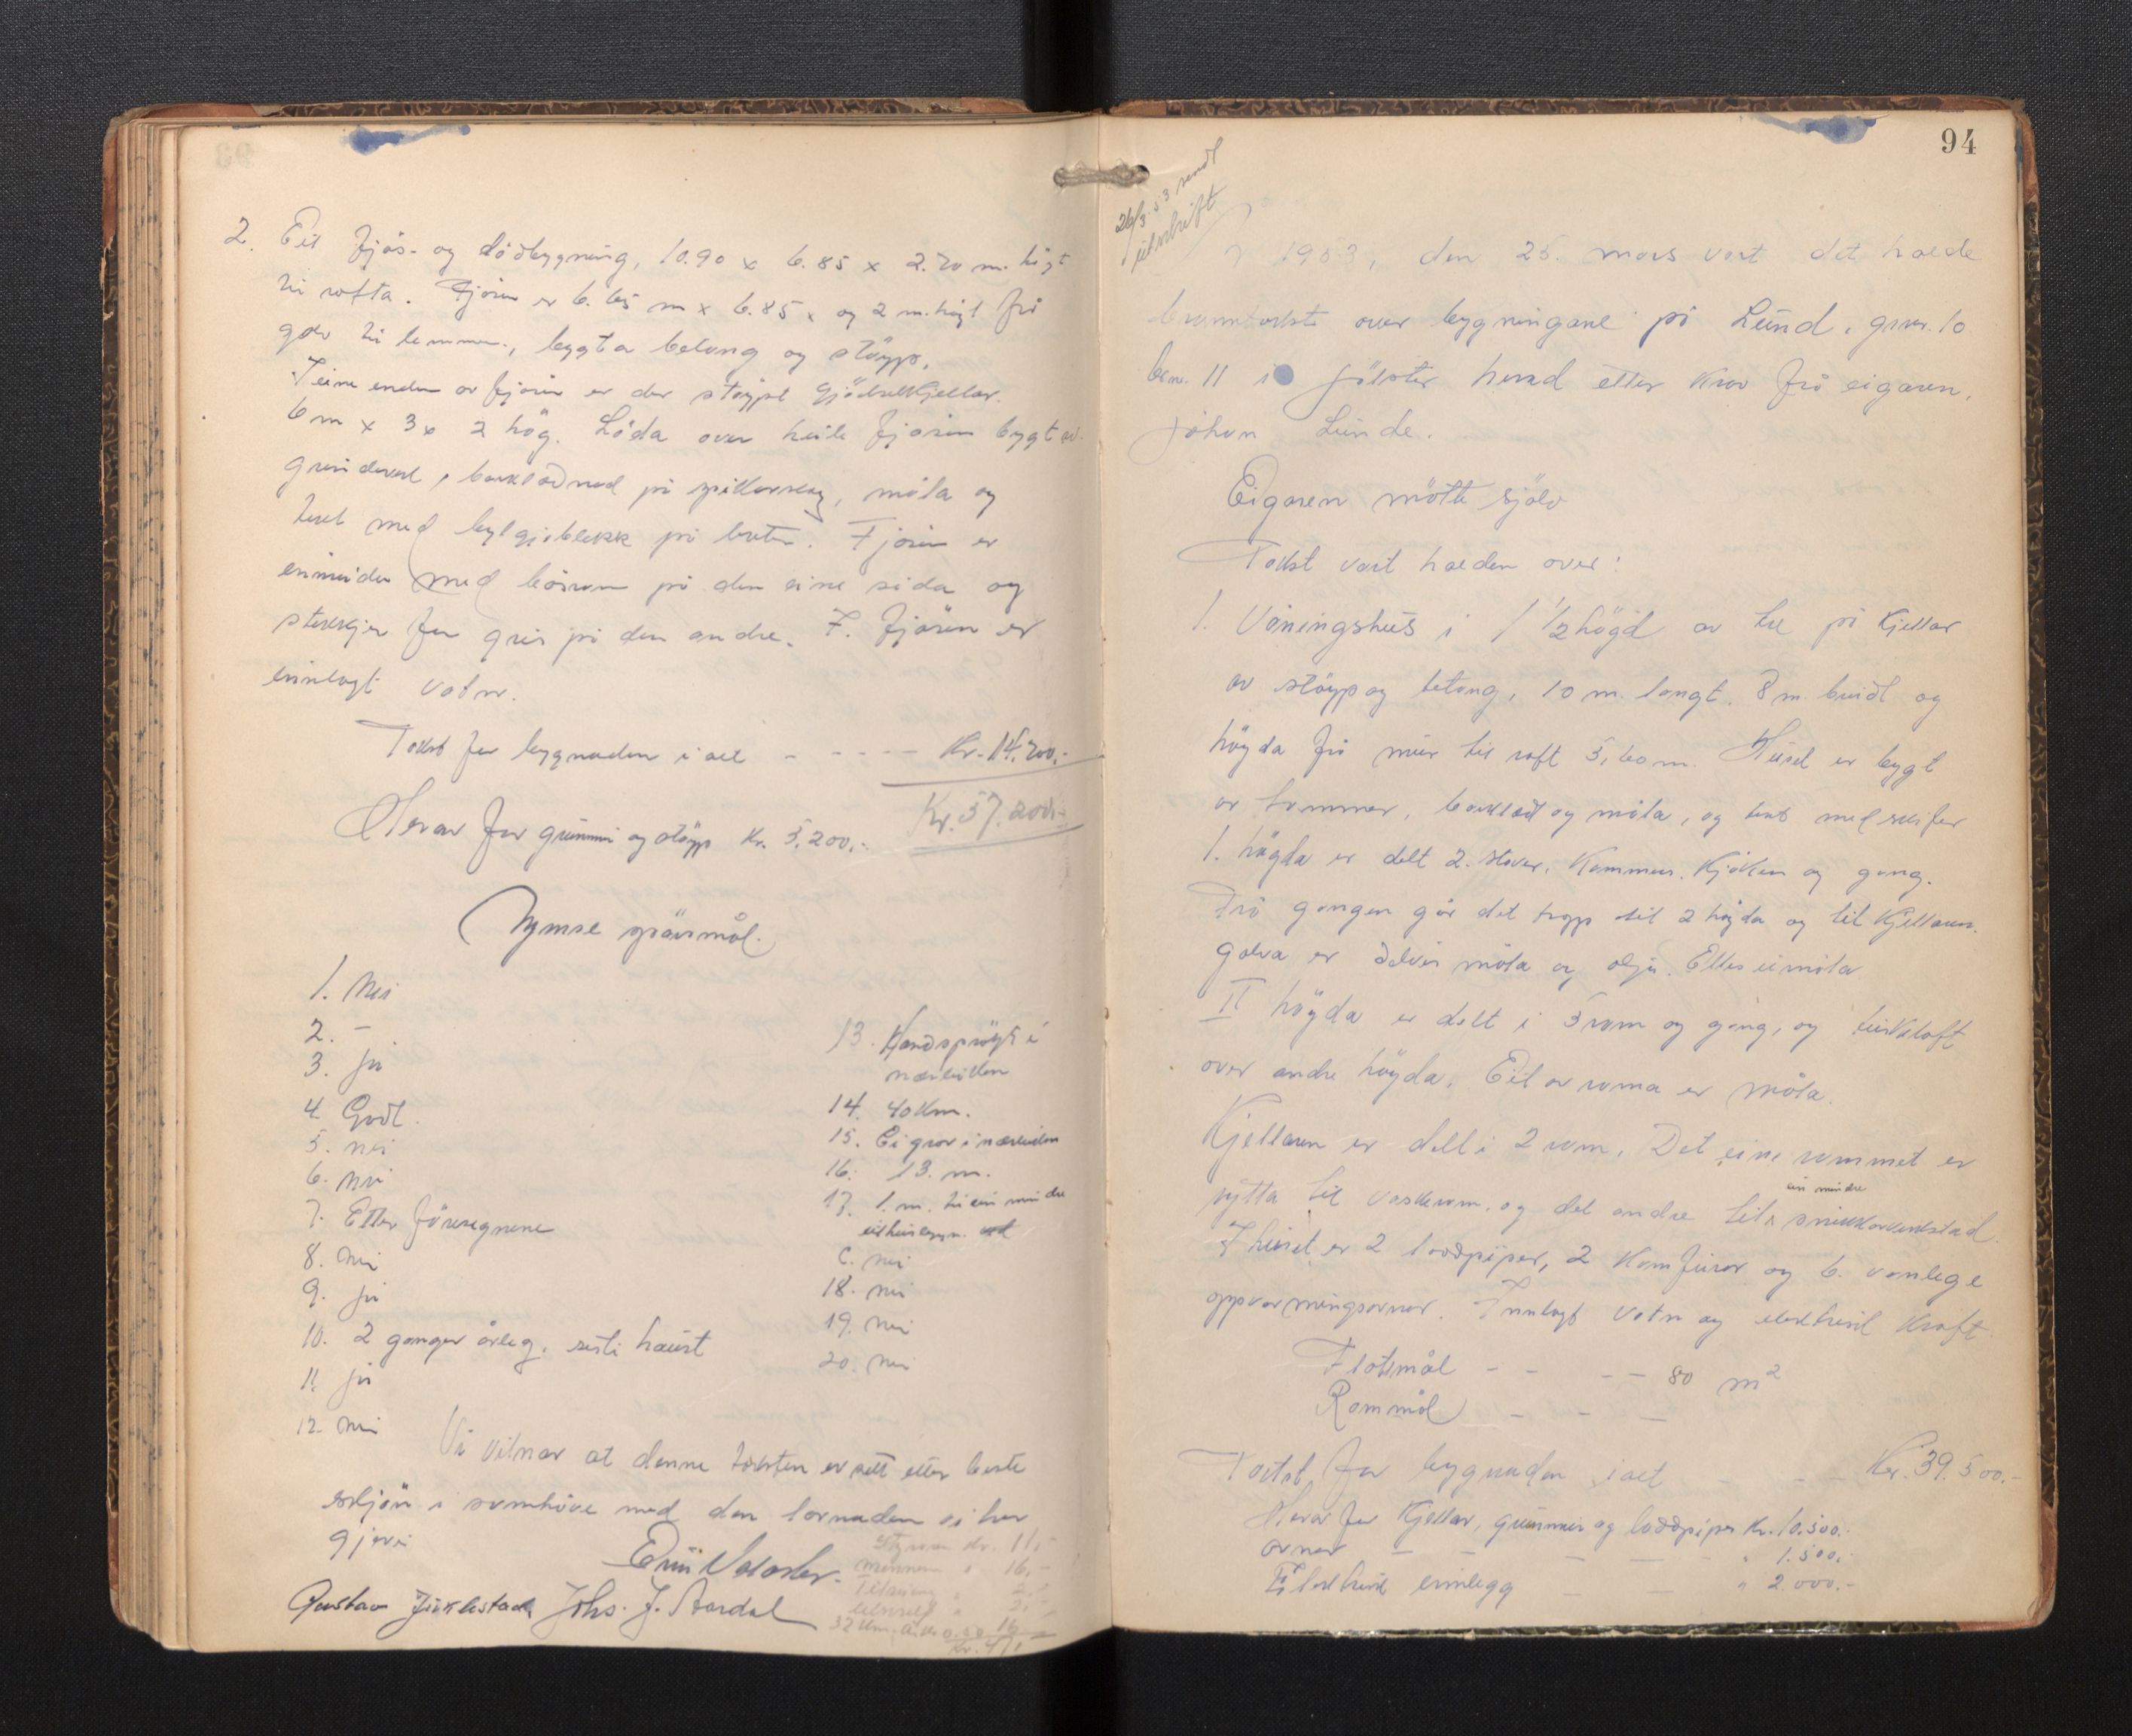 2. Eit fjös- og lödbygning, 10.90 x 6.85 x 2.70 m. högt
til rofta. Fjösen er 6.65 m x 6.85 x og 2 m. högt frå
golv til lemmen, bygt a betong og støyp.
I eine enden av fjösen er der støypt Gjödselkjellar.
6 m x 3 x 2 hög. Löda over heile fjösen bygt av
grindverk, bordkledned på spikarslag, måla og
tekt med bylgjeblekk på bæter. Fjösen er
innreidn med båsrom på den eine sida og
stekkjer for gris på den andre. I fjösen er
innlagt vatn.
Takst for bygnaden i alt - - - - - Kr. 14.700.-
Kr. 57.200.-
Herav for grunnmur og støyp Kr. 5.200.-
Ymse spörsmål.
1. Nei
2. -
3. Ja
4. Godt
5. nei
6. Nei
7. Etter föresegnene
8. Nei
9. ja
10. 2 gonger årleg. sisti haust
11. ja
12. Nei
13. Handspröyte i
närleiken
14. 40 Km.
15. Ei grov i närleiken
16. 13. m.
17. 1. m. til ein mindre
uthusbygn.
C. nei
18. nei
19. Nei
20. Nei
Vi vitnar at denne taksten er sett etter beste
skjön i samhöve med den lovnaden vi har
gjeve
Gustav Johs. J. Årdal
Kr. 11,-
16,-
2,-
2,-
32 Km. 0.50 16
Kr. 47,-
94
26/3-53 sendt
utskrift
År 1953, den 25. mars vart det halde
branntakst over bygningane på Lund, gnr. 10
brnr. 11 i Jölster herad etter krav frå eigaren,
Johan Lunde.
Eigaren mötte sjölv
Takst vart halden over:
1. Våningshus i 1 1/2 högd av tre på kjellar
av støyp og betong, 10 m. langt. 8 m. breidt og
högda frå mur til roft 5,60 m. Huset er bygt
av tømmer, bordkledt og måla, og tekt med skifer
1. högda er delt 2. stover. Kammers. Kjöken og gang.
Frå gangen går det trapp til 2 högda og til Kjellaren.
Golva er delvis måla og olja. Elles umåla
II högda er delt i 5 rom og gang, og turkeloft
over andre högda. Eit av roma er måla.
Kjellaren er delt i 2 rom. Det eine rommet er
nytta til vaskerom, og det andre til ein mindre snikkarverkstad.
I huset er 2 loddpiper, 2 Komfurar og 6. vanlege
oppvarmingsovnar. Innlagt vatn og elektrisk kraft.
Flatemål - - - - 80 m²
Rommål - - -
Takst for bygnaden i alt - - Kr. 39.500.-
Herav for Kjellar, grunnmur og loddpiper Kr. 10.500.-
ovnar - - - - - " 1.500.-
Elektrisk innlegg - - " 2.000.-